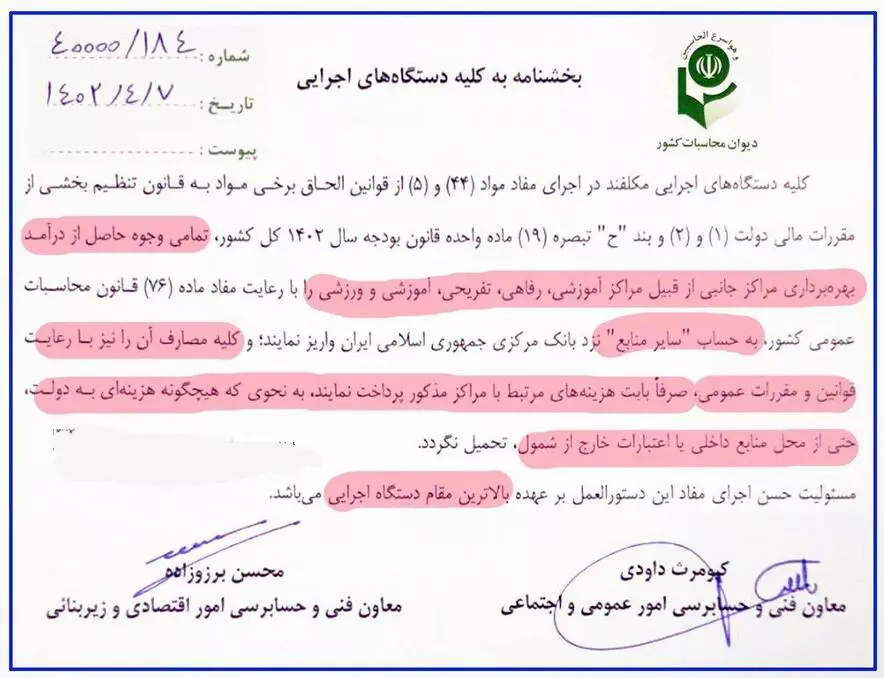 و هو اسرع الحاسبین
دیوان محاسبات کشور
بخشنامه به کلیه دستگاه‌های اجرایی
شماره: ۴۰۰۰۰/۱۸۴
تاریخ: ۱۴۰۲/۴/۷
پیوست:
کلیه دستگاه‌های اجرایی مکلفند در اجرای مفاد مواد (۴۴) و (۵) از قوانین الحاق برخی مواد به قانون تنظیم بخشی از
مقررات مالی دولت (۱) و (۲) و بند "ح" تبصره (۱۹) ماده واحده قانون بودجه سال ۱۴۰۲ کل کشور، تمامی وجوه حاصل از درآمد
بهره‌برداری مراکز جانبی از قبیل مراکز آموزشی، رفاهی، تفریحی، آموزشی و ورزشی را با رعایت مفاد ماده (۷۶) قانون محاسبات
عمومی کشور، به حساب "سایر منابع" نزد بانک مرکزی جمهوری اسلامی ایران واریز نمایند؛ و کلیه مصارف آن را نیز با رعایت
قوانین و مقررات عمومی، صرفاً بابت هزینه‌های مرتبط با مراکز مذکور پرداخت نمایند. به نحوی که هیچگونه هزینه‌ای به دولت،
حتی از محل منابع داخلی یا اعتبارات خارج از شمول، تحمیل نگردد.
مسئولیت حسن اجرای مفاد این دستورالعمل بر عهده بالاترین مقام دستگاه اجرایی می‌باشد.
کیومرث داودی
معاون فنی و حسابرسی امور عمومی و اجتماعی
محسن برزوزاده
معاون فنی و حسابرسی امور اقتصادی و زیربنائی